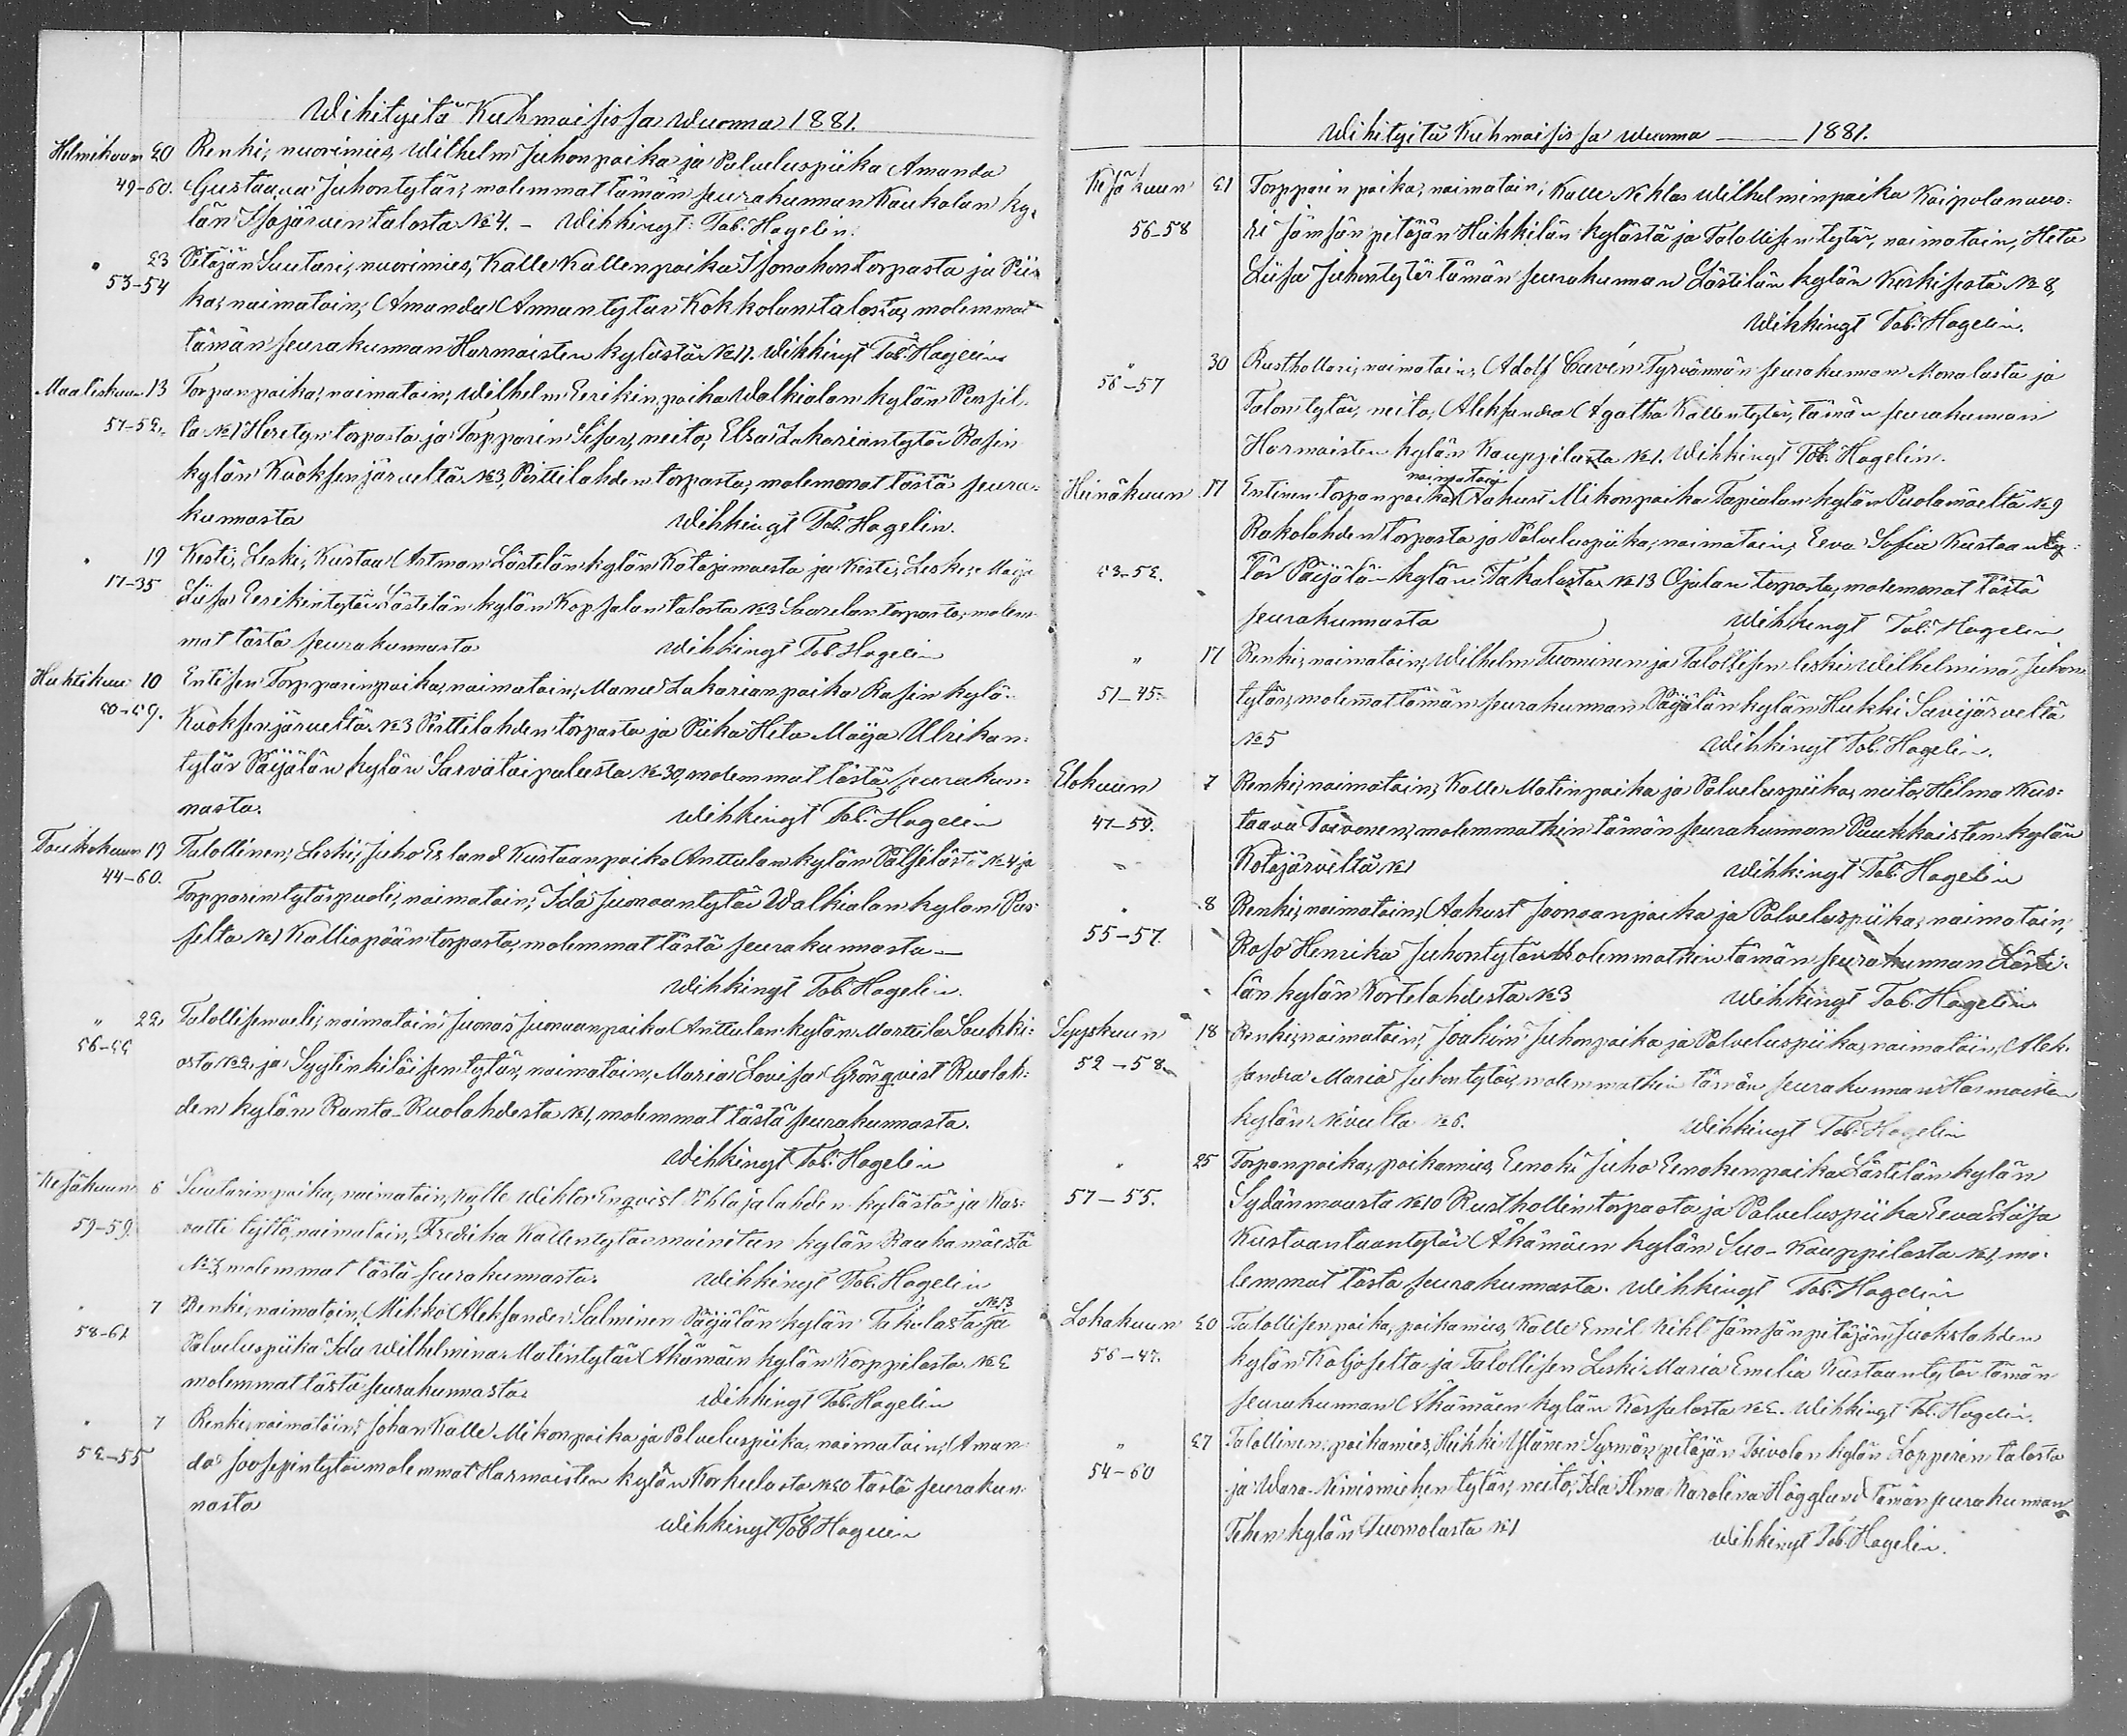 Wihityitä Kuhmoisissa wuonna 1881.
Helmikuun 20 Renki, nuorimies, Wilhelm Juhonpoika ja Palveluspiika Amanda
49-60. Gustaava Juhontytär, molemmat tämän seurakunnan Kaukolan ky-
län Isojärven talosta No 4. - Wihkinyt: Tob. Hagelin.
" 23 Pitäjän Suutari, nuorimies, Kalle Kallenpoika Isonahon torpasta ja Pii-
53-54 ka, naimatoin, Amanda Annantytär Kokkolan talosta, molemmat
tämän seurakunnan Harmoisten kylästä No 17. Wihkinyt Tob. Hagelin
Maaliskuun 13 Torpanpoika, naimatoin, Wilhelm Eerikinpoika Walkialan kylän
57-52. No 1 torpasta ja Torpparin Sisar, neito, Elsa Sakariantytär Rasin
kylän Kuoksenjärveltä No 3, Pirttilahden torpasta, molemmat tästä seura-
kunnasta Wihkinyt Tob. Hagelin.
" 19 Kesti, Leski, Kustaa Artman Lästilän kylän Katajamaesta ja Kesti, Leski, Maija
17-35 Liisa Eerikintytär Lästilän kylän Kopsalan talosta No 3 Saarelan torpasta, molem-
mat tästä seurakunnasta Wihkinyt Tob. Hagelin
Huhtikuu 10 Entisen Torpparinpoika, naimatoin, Manu Sakarianpoika Rasin kylä-
50-59. Kuoksenjärveltä No 3 Pirttilahden torpasta ja Piika Heta Maija Ulrikan-
tytär Päijälän kylän Sarvataipaleesta No 30, molemmat tästä seurakun-
nasta. Wihkinyt Tob. Hagelin
Toukokuun 19 Talollinen, Leski, Juho Erland Kustaanpoika Anttulan kylän Pälsilästä No 4 ja
44-60. Torpparin tytärpuoli, naimatoin, Ida Juonaantytär Walkialan kylän
No 1 Kalliopään torpasta, molemmat tästä seurakunnasta -
Wihkinyt Tob. Hagelin.
" 22 Talollisen veli, naimatoin Juonas Juonaanpoika Anttulan kylän Marttila Soukki-
56-55 osta No 2 ja Syytinkiläisen tytär, naimatoin, Maria Lovisa Grönqvist Ruolah-
den kylän Ranta-Ruolahdesta No 1, molemmat tästä seurakunnasta.
Wihkinyt Tob. Hagelin
Kesäkuun 6 Suutarinpoika, naimatoin, Kalle Wiktor Enqvist Pihlajalahden kylästä ja Kas-
59-59. vatti tyttö, naimatoin, Fredrika Kallentytär mainitun kylän Rauhamäestä
No 3, molemmat tästä seurakunnasta. Wihkinyt Tob. Hagelin
" 7 Renki, naimatoin, Mikko Aleksander Salminen Päijälän kylän Takalasta No 13 ja
58-61 Palveluspiika Ida Wilhelmina Matintytär Äkämäen kylän Korppilasta No 2
molemmat tästä seurakunnasta. Wihkinyt Tob. Hagelin
" 7 Renki, naimatoin, Johan Kalle Mikonpoika ja Palveluspiika, naimatoin, Aman-
52-55 da Joosepintytär molemmat Harmoisten kylän Korkulasta No 20 tästä seurakun-
nasta Wihkinyt Tob Hagelin
Wihityitä Kuhmoisissa wuonna 1881.
Kesäkuun 21 Torpparin poika, naimatoin, Kalle Niklas Wilhelminpoika Kaipolanvuo-
56-58 ri Jämsän pitäjän Hukkilan kylästä ja Talollisen tytär, naimatoin, Heta
Liisa Juhontytär tämän seurakunnan Lästilän kylän Keskisestä No 8,
Wihkinyt Tob. Hagelin.
" 30 Rusthollari, naimatoin, Adolf Cavén Tyrvännän seurakunnan Monalasta ja
56-57 Talontytär, neito, Aleksandra Agatha Kallentytär, tämän seurakunnan
Harmoisten kylän Kauppilasta No 1. Wihkinyt Tob. Hagelin.
Heinäkuun 17 Entinen torpanpoika, naimatoin Aukust Mikonpoika Tapialan kylän Puolamäeltä No 9
Rakolahden torpasta ja Palveluspiika, naimatoin, Eeva Sofia Kustaanty-
53-52. tär Päijälän kylän Takalasta No 13 Ojalan torpasta, molemmat tästä
seurakunnasta Wihkinyt Tob. Hagelin
" 17 Renki, naimatoin, Wilhelm Tuominen ja Talollisen leski Wilhelmina Juhon-
51-45. tytär, molemmat tämän seurakunnan Päijälän kylän Hukki Savijärveltä
No 5 Wihkinyt Tob. Hagelin.
Elokuun 7 Renki, naimatoin, Kalle Matinpoika ja Palveluspiika, neito, Hilma Kus-
47-59. taava Toivonen, molemmatkin tämän seurakunnan Puukkoisten kylän
Kotajärveltä No 1 Wihkinyt Tob. Hagelin
" 8 Renki, naimatoin, Aukust Joonaanpoika ja Palveluspiika, naimatoin,
55-57. Rosa Henrika Juhontytär Molemmatkin tämän seurakunnan Lästi-
län kylän Kortelahdesta No 3 Wihkinyt Tob. Hagelin
Syyskuun 18 Renki, naimatoin, Joakim Juhonpoika ja Palveluspiika, naimatoin, Alek-
52-58. sandra Maria Juhontytär, molemmatkin tämän seurakunnan Harmoisten
kylän No 6. Wihkinyt Tob. Hagelin
" 25 Torpanpoika, poikamies, Eenokki Juho Eenokinpoika Lästilän kylän
57-55. Sydänmaasta No 10 Rusthollin torpasta ja Palveluspiika Eeva Liisa
Kustaantaantytär Äkämäen kylän Suo-Kauppilasta No 1, mo-
lemmat tästä seurakunnasta. Wihkinyt Tob. Hagelin
Lokakuun 20 Talollisen poika, poikamies, Kalle Emil Kihl Jämsän pitäjän, Juokslahden
56-47. kylän Kaljoselta ja Talollisen Leski Maria Emelia Kustaantytär tämän
seurakunnan Äkämäen kylän Karsalasta No 2. Wihkinyt Tob. Hagelin.
" 27 Talollinen, poikamies, Heikki Yllänen Sysmän pitäjän Toivolan kylän Lopperin talosta
54-60 ja Wara-Nimismiehen tytär, neito, Ida Alma Karolina Högglund Tämän seurakunnan
Tehen kylän Tuomolasta No 1 Wihkinyt Tob. Hagelin.